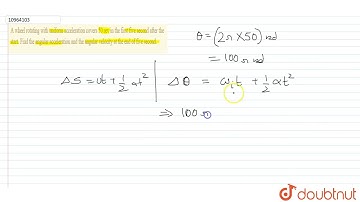 10964103
A wheel rotating with uniform acceleration covers 50 rev in the first five second after the start. Find the angular acceleration and the angular velocity at the end of five second
θ = (2π × 50) rad
= 100 π rad
ΔS = ut + 1/2 at² | Δθ = ωᵢt + 1/2 αt²
⇒ 100 π
doubtnut